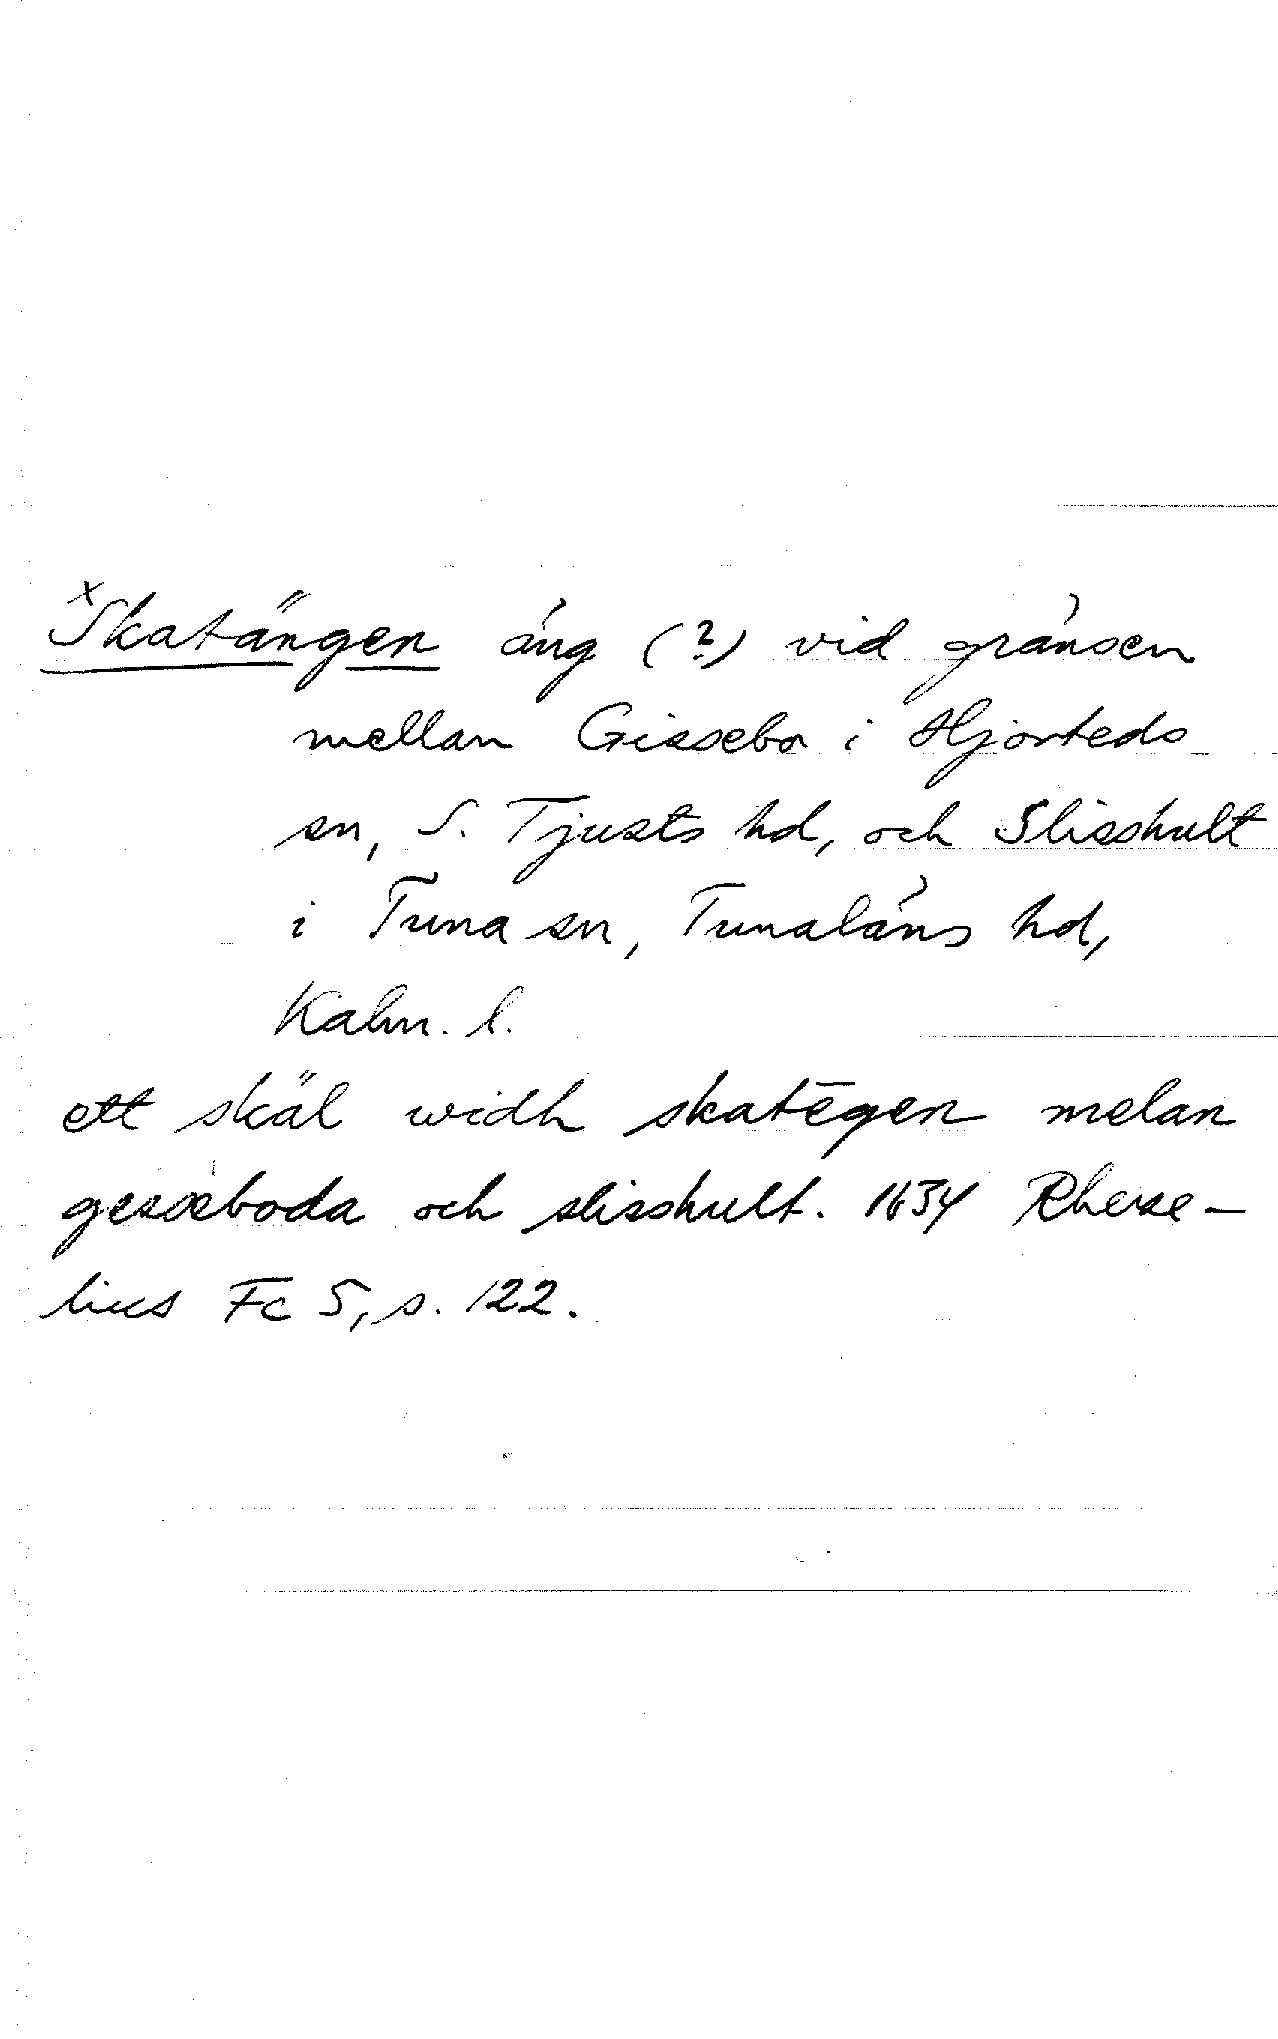 xSkatängen äng (?) vid gränsen
mellan Gissebo i Hjorteds
sn, S. Tjusts hd, och Slisshult
i Tuna sn, Tunaläns hd,
Kalm. l.
ett skäl widh skatēgen melan
gesseboda och slisshult. 1634 Rheze-
lius Fc 5, s. 122.